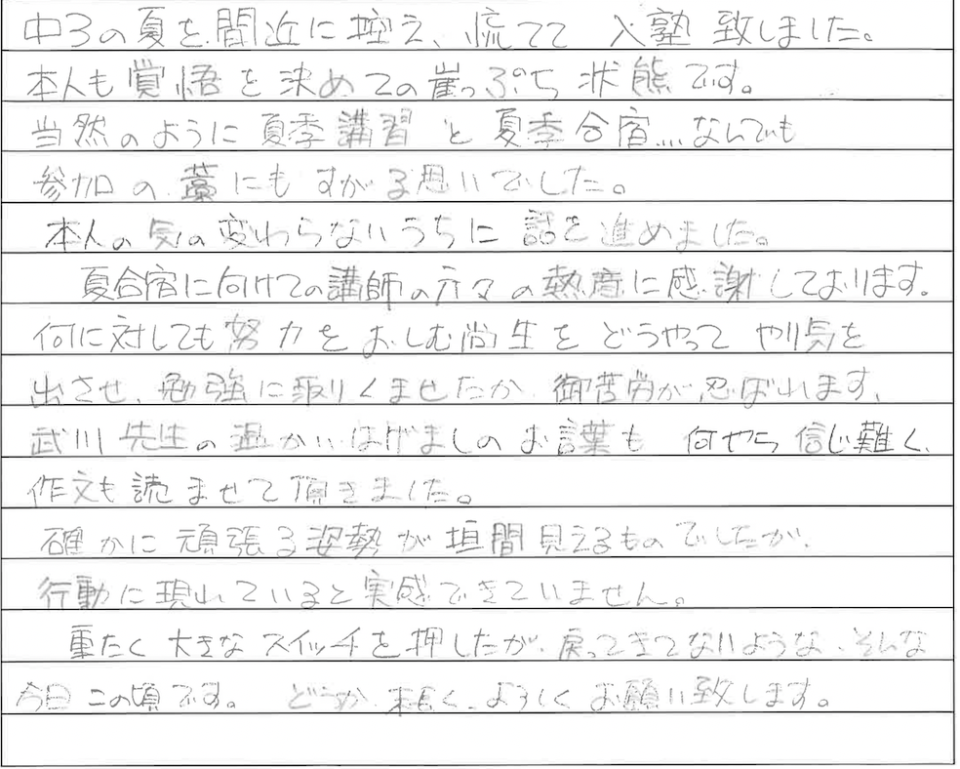 中3の夏を間近に控え、慌てて 入塾 致しました。
本人も覚悟を決めての崖っぷち 状態です。
当然のように夏季講習 と 夏季合宿…なんでも
参加 の 藁にも すがる思いでした。
本人の気の変わらないうちに 話を進めました。
夏合宿に向けての講師の方々の熱意に感謝しております。
何に対しても努力をおしむ尚生を どうやって やり気を
出させ、勉強に取りくませたか 御苦労が忍ばれます、
武川先生の温かいはげましの お言葉も 何やら 信じ難く、
作文も読ませて頂きました。
確かに 頑張る姿勢が垣間見えるものでしたが、
行動に現れていると実感できていません。
重たく 大きな スイッチを押したが、戻ってきてないような、そんな
今日この頃です。 どうか、末長く、よろしく お願い致します。